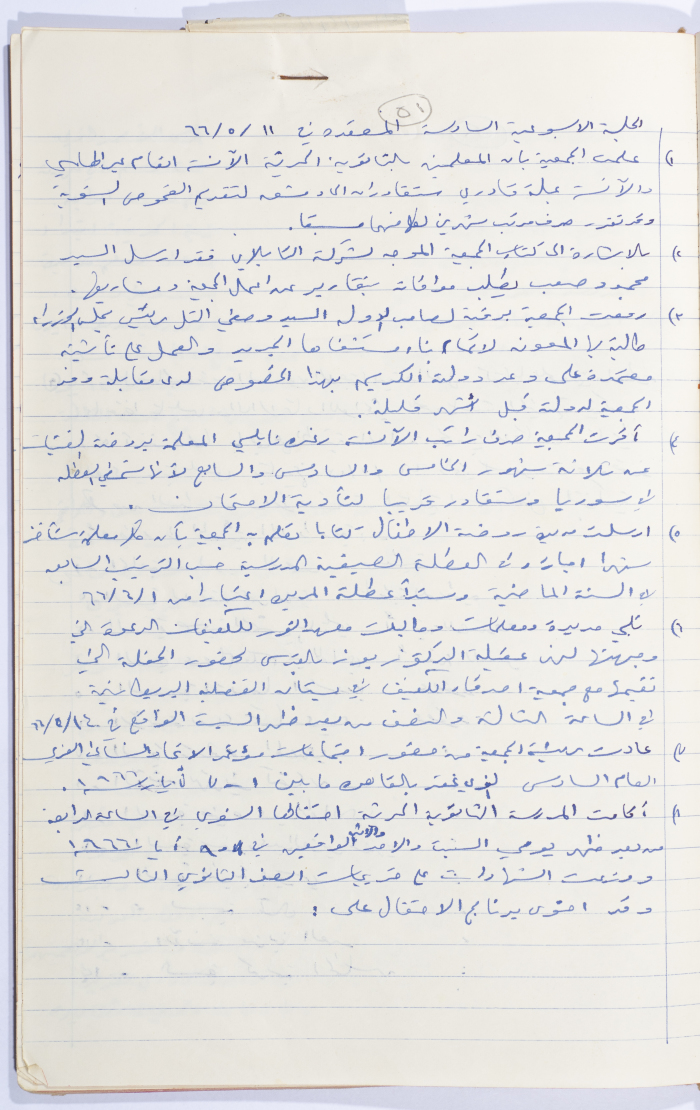 ٥١
الجلسة الاسبوعية السادسة المنعقدة في ١١ /٥ /٦٦
١) علمت الجمعية بأن المعلمين بالثانوية الحديثة الآنسة انعام عبد الهادي
والآنسة عبلة قادري ستغادران الى دمشق لتقديم الفحوص السنوية
وقد تقرر صرف مرتب شهرين لكل منهما مسبقا.
٢) بالاشارة الى كتاب الجمعية الموجه لشركة التابلاين فقد ارسل السيد
محمود صعب يطلب موافاته بتقارير عن اعمال الجمعية ومشاريعها.
٣) رفعت الجمعية برقية لصاحب الدولة السيد وصفي التل رئيس مجلس الوزراء
طالبة بها المعونة لاتمام بناء مستشفاها الجديد والعمل على تأثيثه
معتمدة على وعد دولته الكريم بهذا الخصوص لدى مقابلة وفد
الجمعية لدولته قبل أشهر قليلة.
٤) أقرت الجمعية صرف راتب الآنسة رغدة نابلسي المعلمة بروضة
عن ثلاثة شهور الخامس والسادس والسابع لأنها ستمضي العطلة
في سوريا وستغادر قريبا لتأدية الامتحان.
٥) ارسلت مديرة روضة الاطفال كتابا تعلم به الجمعية بأن كل معلمة ستأخذ
شهرا اجازة في العطلة الصيفية المدرسية حسب الترتيب السابق
في السنة الماضية وستبدأ عطلة المدرسة اعتبارا من ٦٦/٦/١
٦) تلبي مديرة ومعلمات وطالبات معهد النور للكفيفات الدعوة التي
وجهتها لهن عقيلة الدكتور بالقدس لحضور الحفلة التي
تقيمها مع جمعية اصدقاء الكفيف في بستان القنصلية البريطانية
في الساعة الثالثة والنصف من بعد ظهر السبت الواقع في ٦٦/٥/١٤
٧) عادت رئيسة الجمعية من حضور اجتماعات مؤتمر الاتحاد النسائي العربي
العام السادس الذي عقد بالقاهرة ما بين ١ – ٧ أيار ١٩٦٦.
٨) أقامت المدرسة الثانوية الحديثة احتفالها السنوي في الساعة الرابعة
من بعد ظهر يومي السبت والاحد والاثنين الواقعين في أيار ١٩٦٦
ووزعت الشهادات على خريجات الصف الثانوي الثالث
وقد احتوى برنامج الاحتفال على :